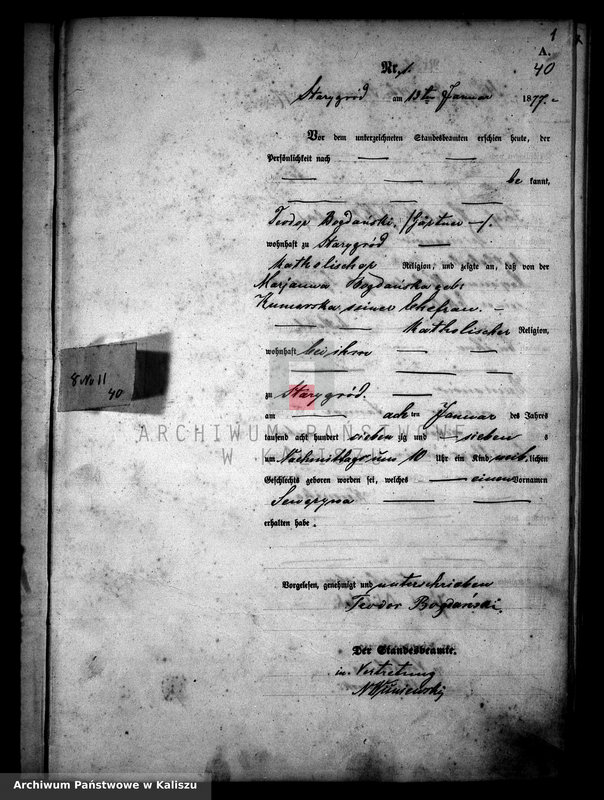 1
A.
40
Nr. 1.
Starygród am 13ten Januar 1877.
Vor dem unterzeichneten Standesbeamten erschien heute, der
Persönlichkeit nach
be kannt,
Teodor Bogdański. /Gärtner/.
wohnhaft zu Starygród
katholischer Religion, und zeigte an, daß von der
Marjanna Bogdańska geb:
seiner Ehefrau.
katholischer Religion,
wohnhaft bei ihm
8 No 11
40
zu Starygród.
am acht ten Januar des Jahres
tausend acht hundert sieben zig und sieben
um Nachmittags um 10 Uhr ein Kind weib lichen
Geschlechts geboren worden sei, welches einen Vornamen
Seweryna
erhalten habe.
Vorgelesen, genehmigt und unterschrieben
Teodor Bogdański.
Der Standesbeamte.
in Vertretung
N Wiśniewski
ARCHIWUM PAŃSTWOWE
W KALISZU
Archiwum Państwowe w Kaliszu